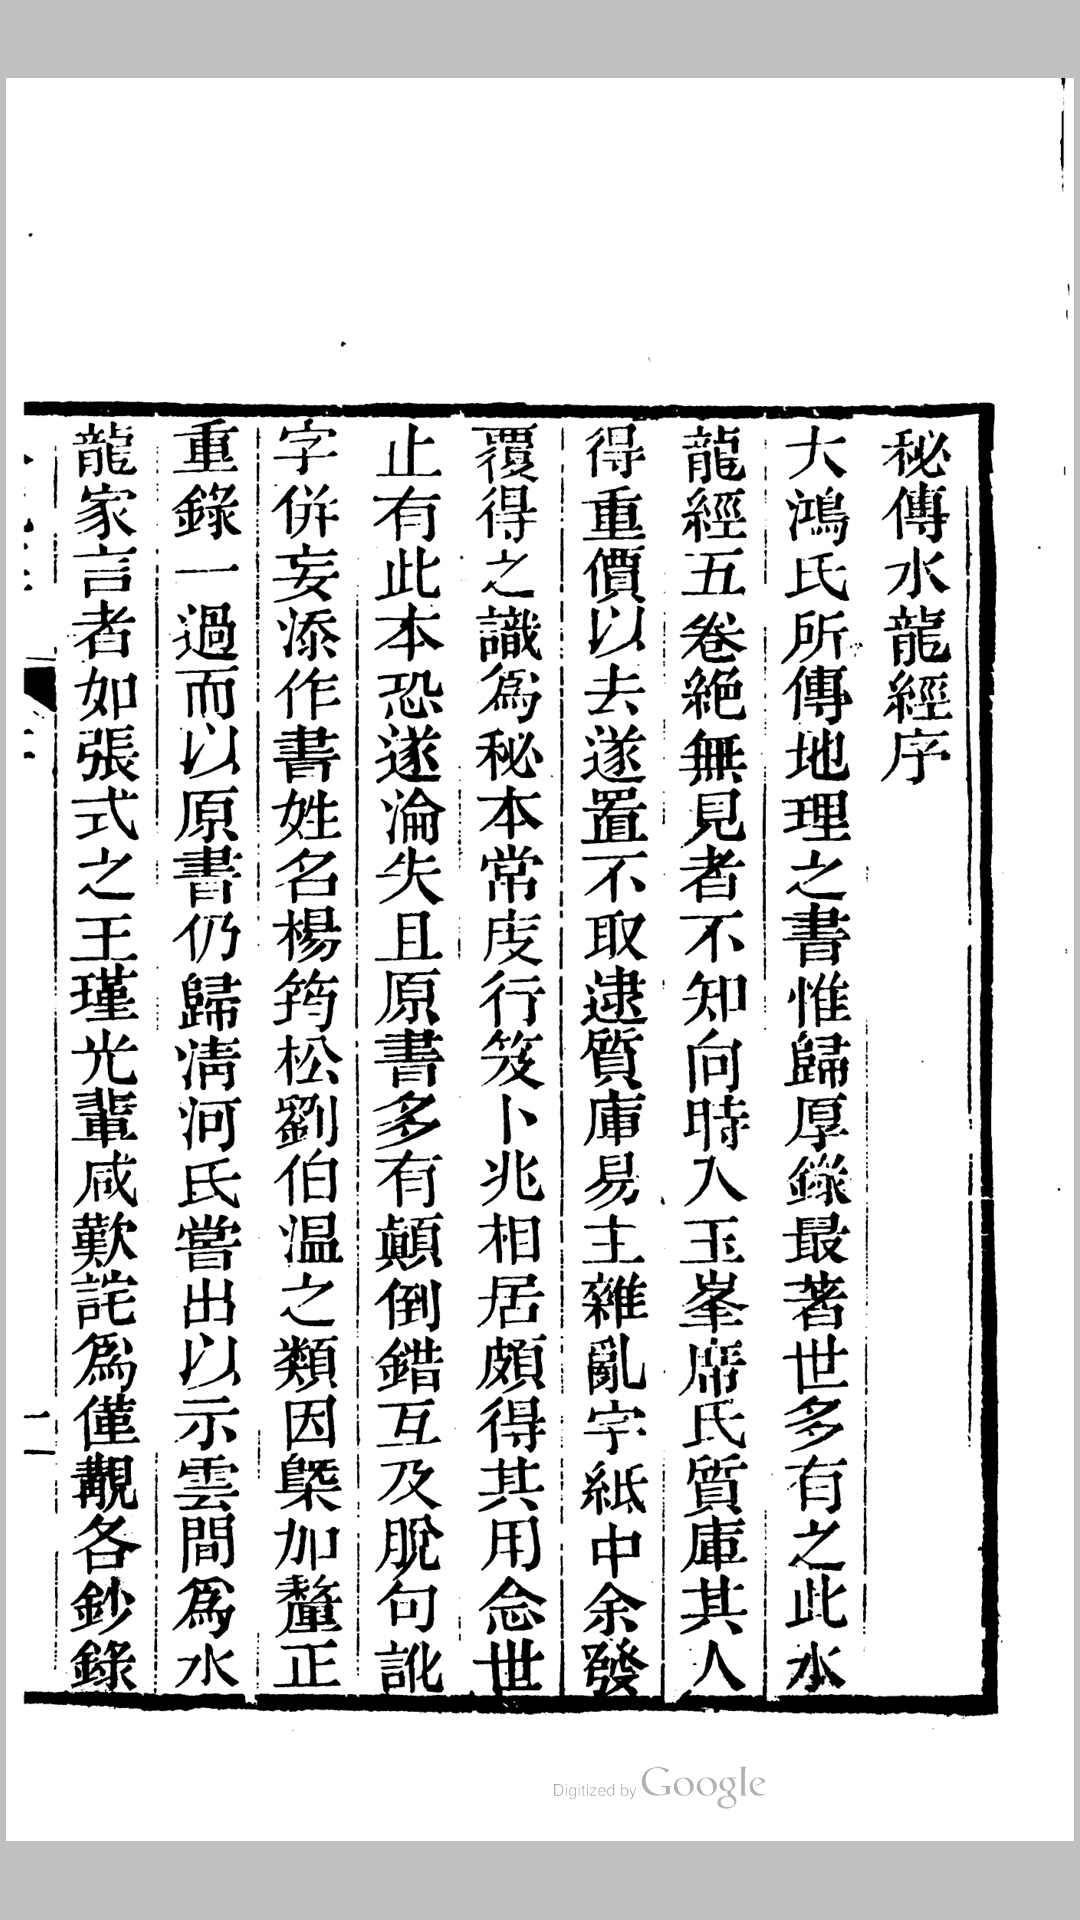 秘傳水龍經序
大鴻氏所傳地理之書惟歸厚錄最著世多有之此水
龍經五卷絶無見者不知向時入玉峯席氏質庫其人
得重價以去遂置不取逮質庫易主雜亂字紙中余發
覆得之識爲秘本常庋行笈卜兆相居頗得其用念世
止有此本恐遂淪失且原書多有顛倒錯互及脫句訛
字併妄添作書姓名楊筠松劉伯温之類因槩加釐正
重錄一過而以原書仍歸淸河氏嘗出以示雲間爲水
龍家言者如張式之王瑾光輩咸歎詫爲僅覯各鈔錄
Digitized by Google